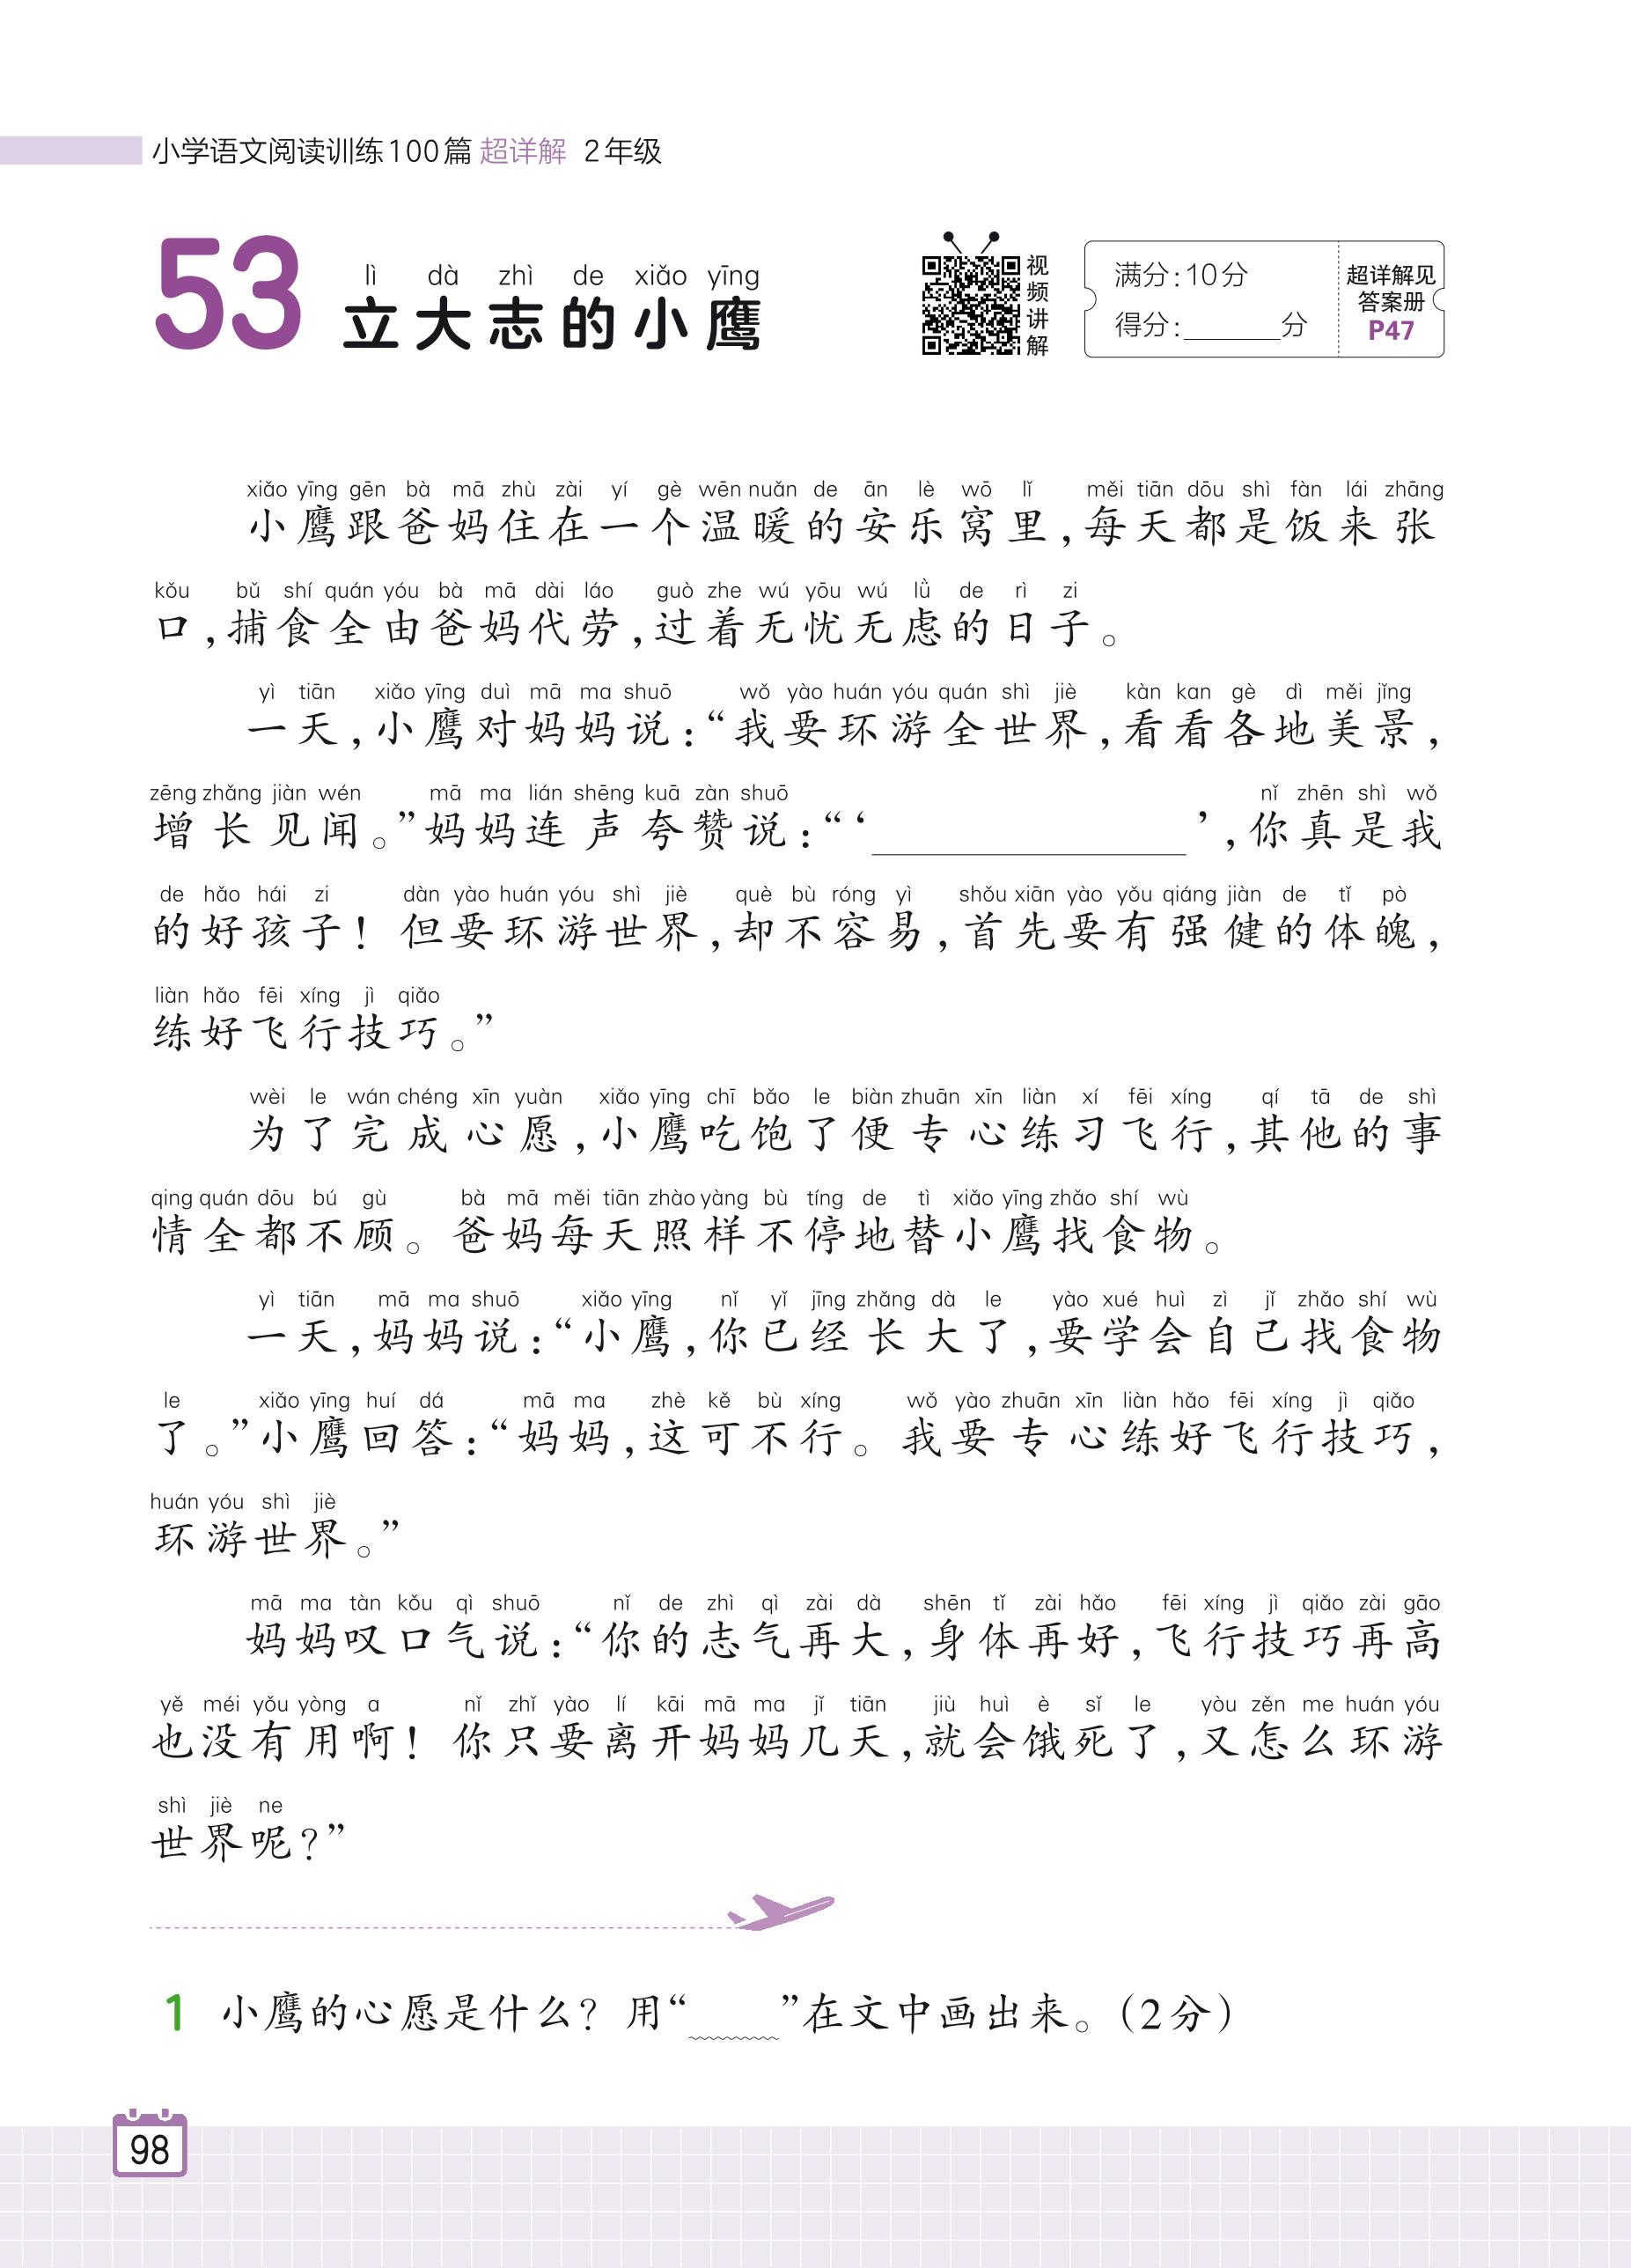 小学语文阅读训练100篇 超详解 2年级
53
lì dà zhì de xiǎo yīng
立大志的小鹰
视频讲解
满分：10分
得分：______分
超详解见
答案册
P47
xiǎo yīng gēn bà mā zhù zài yí gè wēn nuǎn de ān lè wō lǐ měi tiān dōu shì fàn lái zhāng
小鹰跟爸妈住在一个温暖的安乐窝里，每天都是饭来张
kǒu bǔ shí quán yóu bà mā dài láo guò zhe wú yōu wú lǜ de rì zi
口，捕食全由爸妈代劳，过着无忧无虑的日子。
yì tiān xiǎo yīng duì mā ma shuō wǒ yào huán yóu quán shì jiè kàn kan gè dì měi jǐng
一天，小鹰对妈妈说：“我要环游全世界，看看各地美景，
zēng zhǎng jiàn wén mā ma lián shēng kuā zàn shuō nǐ zhēn shì wǒ
增长见闻。”妈妈连声夸赞说：“‘______________’，你真是我
de hǎo hái zi dàn yào huán yóu shì jiè què bù róng yì shǒu xiān yào yǒu qiáng jiàn de tǐ pò
的好孩子！但要环游世界，却不容易，首先要有强健的体魄，
liàn hǎo fēi xíng jì qiǎo
练好飞行技巧。”
wèi le wán chéng xīn yuàn xiǎo yīng chī bǎo le biàn zhuān xīn liàn xí fēi xíng qí tā de shì
为了完成心愿，小鹰吃饱了便专心练习飞行，其他的事
qing quán dōu bú gù bà mā měi tiān zhào yàng bù tíng de tì xiǎo yīng zhǎo shí wù
情全都不顾。爸妈每天照样不停地替小鹰找食物。
yì tiān mā ma shuō xiǎo yīng nǐ yǐ jīng zhǎng dà le yào xué huì zì jǐ zhǎo shí wù
一天，妈妈说：“小鹰，你已经长大了，要学会自己找食物
le xiǎo yīng huí dá mā ma zhè kě bù xíng wǒ yào zhuān xīn liàn hǎo fēi xíng jì qiǎo
了。”小鹰回答：“妈妈，这可不行。我要专心练好飞行技巧，
huán yóu shì jiè
环游世界。”
mā ma tàn kǒu qì shuō nǐ de zhì qì zài dà shēn tǐ zài hǎo fēi xíng jì qiǎo zài gāo
妈妈叹口气说：“你的志气再大，身体再好，飞行技巧再高
yě méi yǒu yòng a nǐ zhǐ yào lí kāi mā ma jǐ tiān jiù huì è sǐ le yòu zěn me huán yóu
也没有用啊！你只要离开妈妈几天，就会饿死了，又怎么环游
shì jiè ne
世界呢？”
1 小鹰的心愿是什么？用“____”在文中画出来。（2分）
98